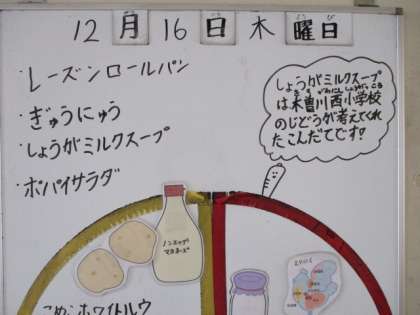 12月16日木曜日
・レーズンロールパン
・ぎゅうにゅう
・しょうがミルクスープ
・ポパイサラダ
しょうがミルクスープ
は木曽川西小学校
のじどうが考えてくれ
たこんだてです！
ノンエッグ
マヨネーズ
こめこホワイトルウ